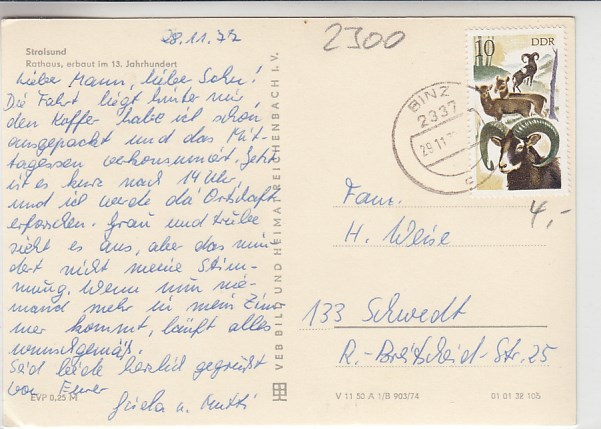 28.11.77
2300
Stralsund
Rathaus, erbaut im 13. Jahrhundert
Lieber Mann, lieber Sohn!
Die Fahrt liegt hinter mir,
den Koffer habe ich schon
ausgepackt und das Mit-
tagessen verkonsumiert. Jetzt
ist es kurz nach 14 Uhr,
und ich werde da Ortschaft
erforschen. Grau und trübe
sieht es aus, aber das min-
dert nicht meine Stim-
mung. Wenn nun nie-
mand mehr in mein Zim-
mer kommt, läuft alles
wunschgemäß.
Seid beide herzlich gegrüßt
von Eurer
u. Mutti
EVP 0,25 M
VEB BILD UND HEIMAT REICHENBACH I. V.
10 DDR
BINZ
2337
29.11.
4,-
Fam.
H. Weise
133 Schwedt
R.-Breitscheid-Str. 25
V 11 50 A 1/B 903/74
01 01 32 105